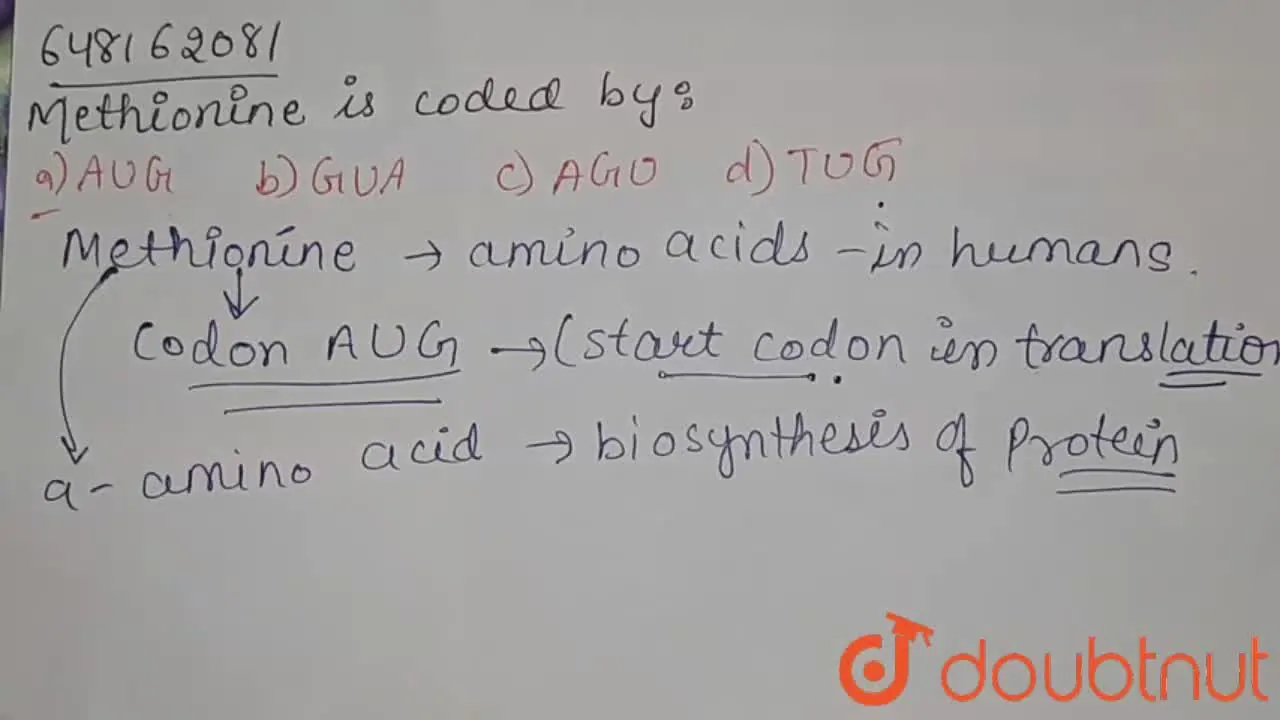 648162081
Methionine is coded by:
a) AUG b) GUA c) AGU d) TUG
Methionine → amino acids - in humans.
Codon AUG → (start codon in translation
a - amino acid → biosynthesis of Protein
doubtnut